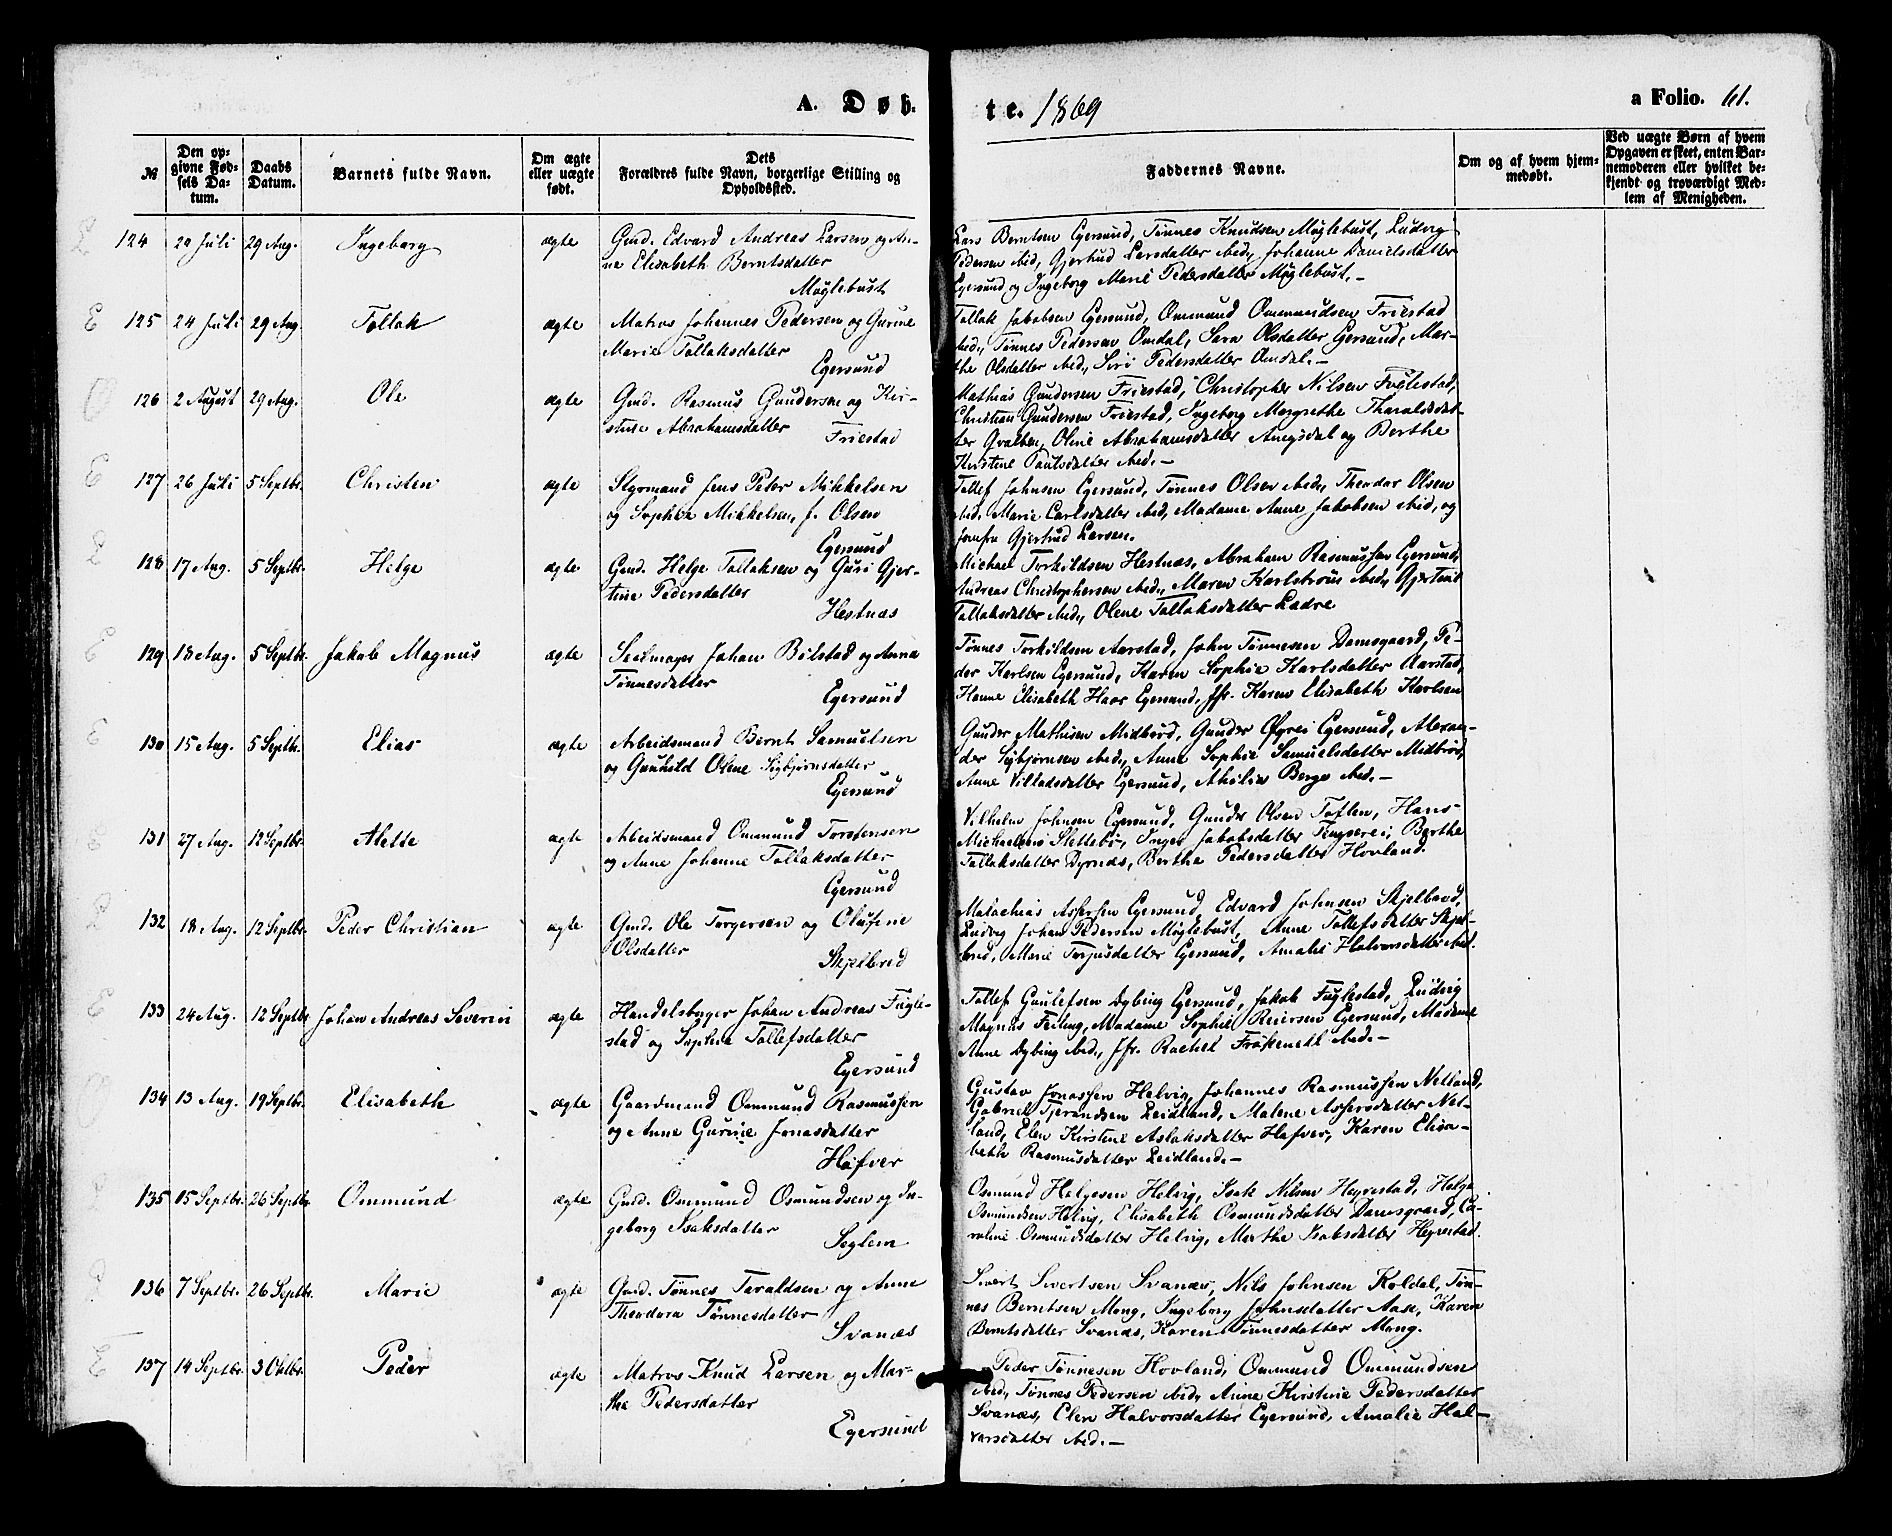 A. Døb. te. 1869 a Folio. 61.
№ Den opgivne Fødsels Datum. Daabs Datum. Barnets fulde Navn. Om ægte eller uægte født. Dets Forældres fulde Navn, borgerlige Stilling og Opholdssted. Faddernes Navne. Om og af hvem hjemmedøbt. Ved uægte Børn af hvem Opgaven er skeet, enten Barnemoderen eller hvilket bekjendt og troværdigt Medlem af Menigheden.
124 20 Juli 29 Aug. Ingeborg ægte Gmd. Edvard Andreas Larsen og An-
ne Elisabeth Berntsdatter
Møglebust
Lars Berntsen Egersund, Tønnes Knudsen Møglebust, Ludvig
Pedersen ibid, Gjertrud Larsdatter ibid, Johanne Danielsdatter
Egersund og Ingeborg Marie Pedersdatter Møglebust.-
125 24 Juli 29 Aug. Tollak ægte Matros Johannes Pedersen og Gurine
Marie Tollaksdatter
Egersund
Tollak Jakobsen Egersund, Ommund Ommundsen Friestad
ibid, Tønnes Pedersen Omdal, Sara Olsdatter Egersund, Mar-
the Olsdatter ibid, Siri Pedersdatter Omdal.-
126 2 August 29 Aug. Ole ægte Gmd. Rasmus Gundersen og Kir-
stine Abrahamsdatter
Friestad
Mathias Gundersen Friestad, Christopher Nilsen Fuglestad,
Christian Gundersen Friestad, Ingeborg Margrethe Tharaldsdat-
ter Qvalben, Oline Abrahamsdatter Amgsdal og Berthe
Kirstine Paulsdatter ibid.-
127 26 Juli 5 Septbr. Christen ægte Styrmand Jens Peter Mikkelsen
og Sophia Mikkelsen, f. Olsen
Egersund
Tollef Johnsen Egersund, Tønnes Olsen ibid, Theodor Olsen
ibid, Marie Carlsdatter ibid, Madame Anne Jakobsen ibid, og
Jomfru Gjertrud Larsen.
128 17 Aug. 5 Septbr. Helge ægte Gmd. Helge Tollaksen og Guri Gjer-
tine Pedersdatter
Hestnæs
Michael Torkildsen Hestnæs, Abraham Rasmussen Egersund,
Andreas Christophersen ibid, Maren Karlstrøm ibid, Gjertine
Tollaksdatter ibid, Olene Tollaksdatter Ladre
129 13 Aug. 5 Septbr. Jakob Magnus ægte Seilmager Johan Bilstad og Anna
Tønnesdatter
Egersund
Tønnes Torkildsen Aarstad, John Tønnesen Damsgaard, Pe-
der Karlsen Egersund, Karen Sophie Karlsdatter Aarstad,
Hanne Elisabeth Haar Egersund, Jfr. Karen Elisabeth Karlsen
130 15 Aug. 5 Septbr. Elias ægte Arbeidsmand Bernt Samuelsen
og Gunhild Olene Sigbjørnsdatter
Egersund
Gunder Mathisen Midbrød, Gunder Øgrei Egersund, Alexan-
der Sigbjørnsen ibid, Anne Sophie Samuelsdatter Midbrød,
Anne Villadsdatter Egersund, Athilia Berge ibid.-
131 27 Aug. 12 Septbr. Alette ægte Arbeidsmand Ommund Torstensen
og Anne Johanne Tollaksdatter
Egersund
Vilhelm Johnsen Egersund, Gunder Olsen Tøften, Hans
Michaelsen Slettebø, Inger Jakobsdatter Tengserei, Berthe
Tollaksdatter Dyrnæs, Berthe Pedersdatter Hovland.
132 18 Aug. 12 Septbr. Peder Christian ægte Gmd. Ole Torgersen og Olufine
Olsdatter
Skjelbred
Malachias Assersen Egersund, Edvard Johnsen Skjelbred,
Ludvig Johan Pedersen Møglebust, Anne Tollefsdatter Skjel-
bred, Marie Torjusdatter Egersund, Amalie Halvorsdatter ibid.
133 24 Aug. 12 Septbr. Johan Andreas Severin ægte Handelsborger Johan Andreas Fugle-
stad og Sophia Tollefsdatter
Egersund
Tollef Gaulefsen Dybing Egersund, Jakob Fuglestad, Ludvig
Magnus Feiling, Madame Sophie Reiersen Egersund, Madame
Anne Dybing ibid., Jfr. Rachel ibid.-
134 13 Aug. 19 Septbr. Elisabeth ægte Gaardmand Ommund Rasmussen
og Anne Gurine Jonasdatter
Hafver
Gustav Jonassen Helvig, Johannes Rasmussen Netland,
Gabriel Tjerandsen Leidland, Malene Assersdatter Net-
land, Elen Kirstine Aslaksdatter Hafver, Karen Elisa-
beth Rasmusdatter Leidland.-
135 05 Septbr. 26 Septbr. Ommund ægte Gmd. Ommund Osmundsen og In-
geborg Isaksdatter
Seglem
Osmund Helgesen Helvig, Isak Nilsen Heyrestad, Helge
Osmundsen Helvig, Elisabeth Osmundsdatter Damsgaard, Ca-
roline Osmundsdatter Helvig, Marthe Isaksdatter Heyrestad.
136 7 Septbr. 26 Septbr. Marie ægte Gmd. Tønnes Taraldsen og Anne
Theodora Tønnesdatter
Svanæs
Sivert Sivertsen Svanæs, Nils Johnsen Koldal, Tøn-
nes Berntsen Mong, Ingeborg Johnsdatter Aase, Karen
Berntsdatter Svanæs, Karen Tønnesdatter Mong.
137 14 Septbr. 3 Octbr. Peder ægte Matros Knud Larsen og Mar-
the Pedersdatter
Egersund
Peder Tønnesen Hovland, Ommund Ommundsen
ibid, Tønnes Pedersen ibid, Anne Kirstine Pedersdatter
Svanæs, Elen Halvorsdatter Egersund, Amalie Hal-
vorsdatter ibid.-